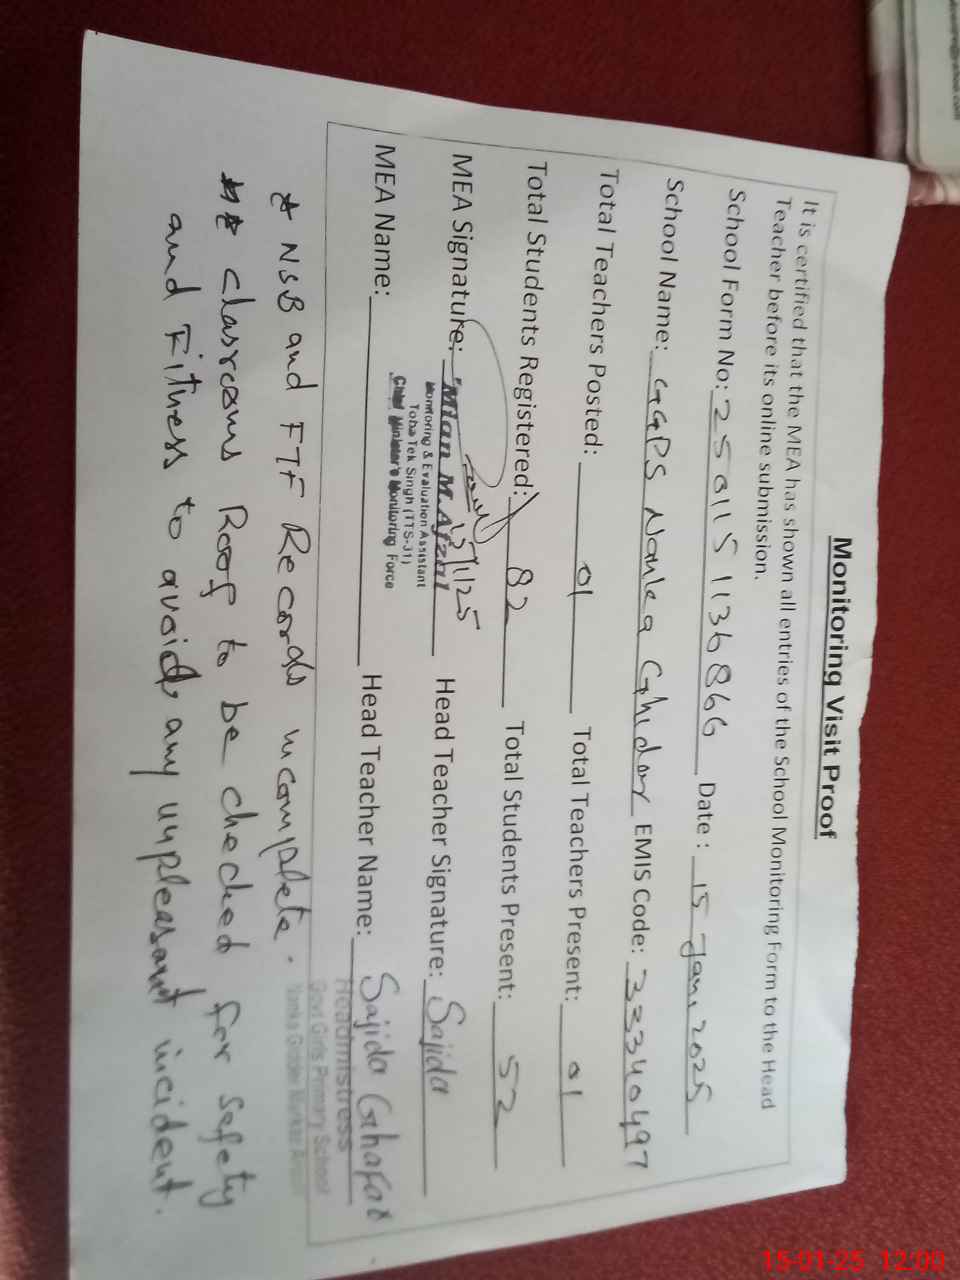 Monitoring Visit Proof
It is certified that the MEA has shown all entries of the School Monitoring Form to the Head
Teacher before its online submission.
School Form No: 250115 1136866 Date : 15 Jan, 2025
School Name: GGPS Nanka Ghidar EMIS Code: 33340497
Total Teachers Posted: 01 Total Teachers Present: 01
Total Students Registered: 82 Total Students Present: 52
MEA Signature: 15/1/25 Head Teacher Signature: Sajida
Mian M. Afzal
Monitoring & Evaluation Assistant
Toba Tek Singh (TTS-31)
Chief Minister's Monitoring Force
MEA Name: Head Teacher Name: Sajida Ghafar
Headmistress
Govt Girls Primary School
* NSB and FTF Records incomplete.
** Classrooms Roof to be checked for safety
and Fitness to avoid any unpleasant incident.
15-01-25 12:00